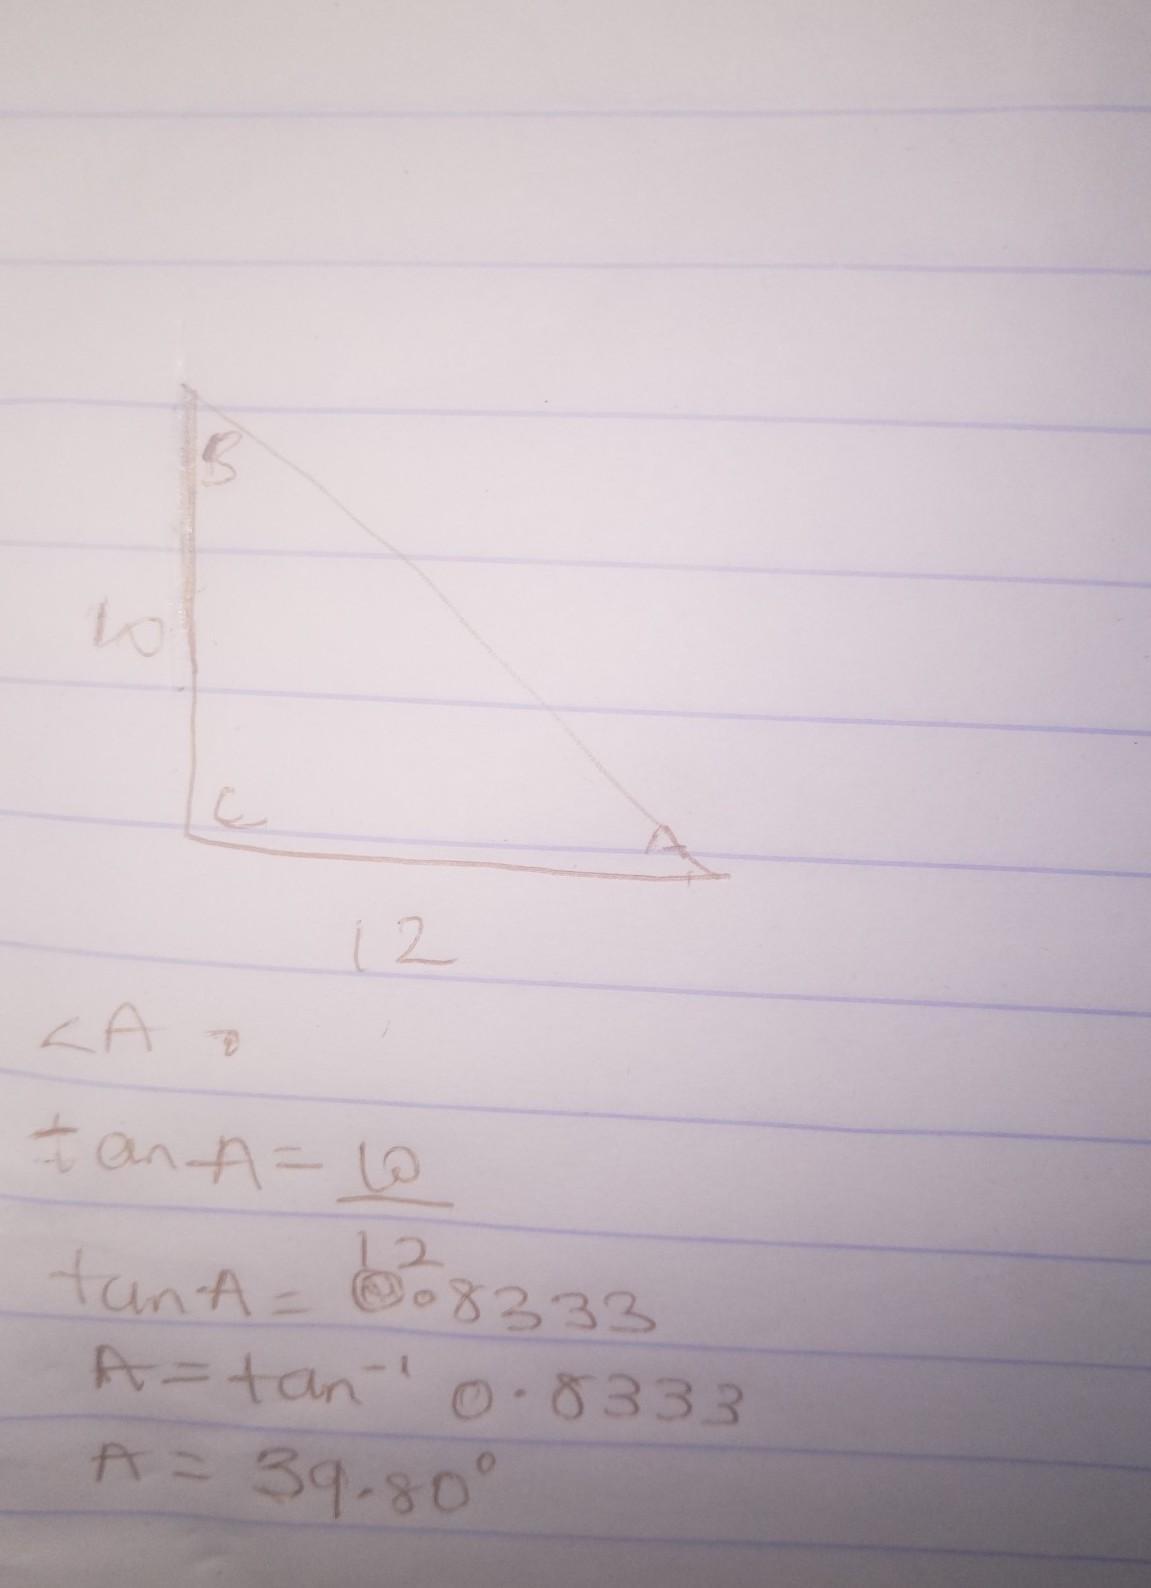 B
10
C
A
12
<A =
tan A = 10
12
tan A = 0.8333
A = tan⁻¹ 0.8333
A = 39.80°